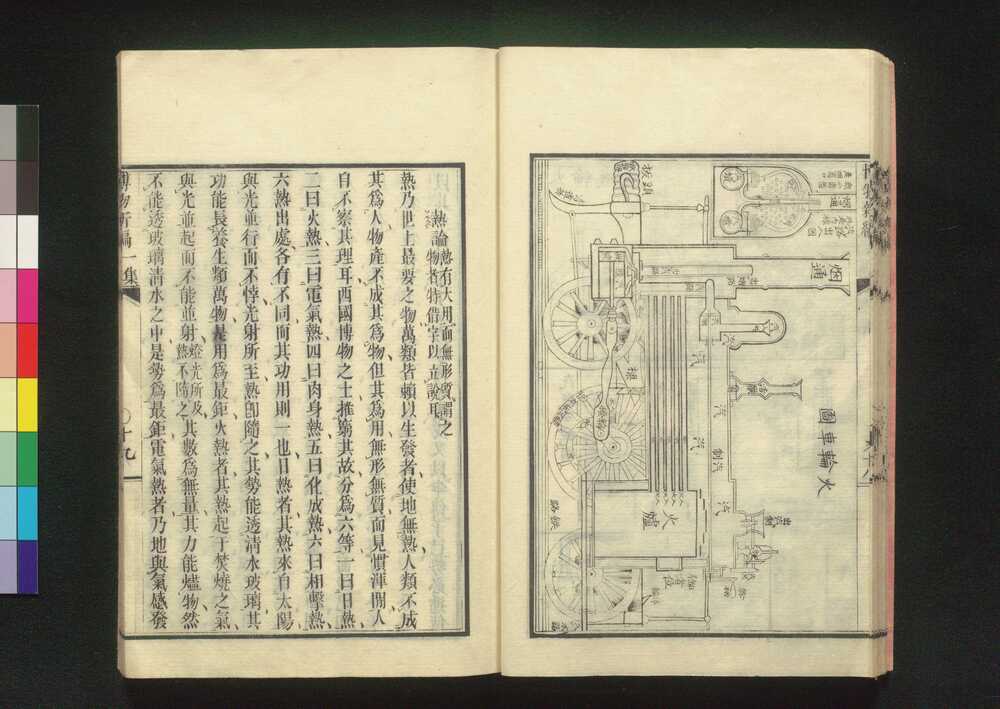 火輪車圖
烟通
汽
汽
汽
汽制
火爐
鐵路
熱論熱有大用而無形質謂之
物者特借字以立說耳
熱乃世上最要之物萬類皆賴以生發者使地無熱人類不成
其為人物產不成其為物但其為用無形無質而見慣渾閒人
自不察其理耳西國博物之士推窮其故分為六等一曰日熱
二曰火熱三曰電氣熱四曰肉身熱五曰化成熱六曰相擊熱
六熱出處各有不同而其功用則一也日熱者其熱來自太陽
與光並行而不悖光射所至熱卽隨之其勢能透清水玻璃其
功能長養生類萬物是用為最鉅火熱者其熱起于焚燒之氣
與光並起而不能並射燈光所及熱不隨之其數為無量其力能爐物然
不能透玻璃清水之中是勢為最鉅電氣熱者乃地與氣感發
博物新編一集
十九